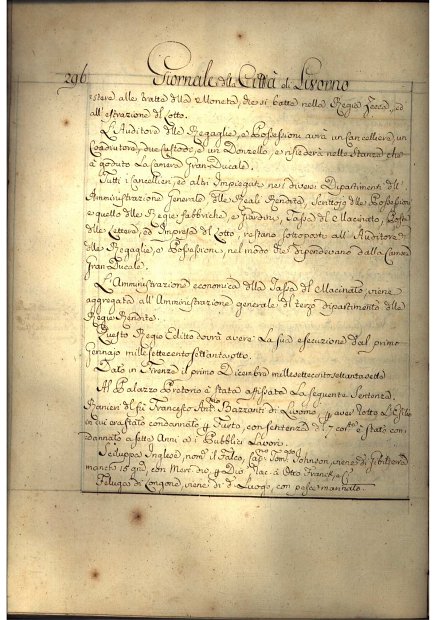 296.
Giornale della Città di Livorno
istere alle tratta della Moneta, che si batte nella Regia Zecca, ed
all'estrazione del Lotto.
L'Auditore delle Regaglie, e Possessioni avrà un Cancelliere, un
Coadiutore, due Custodi, e un Donzello, e risiederà nelle Stanze che
à goduto La Camera Gran-Ducale.
Tutti i Cancellieri, ed altri Impiegati nei diversi Dipartimenti dell'
Amministrazione Generale delle Reali Rendite, Scrittojo delle Possessioni
e quello delle Regie Fabbriche, e Giardini, Tassa del Macinato, Posta
delle Lettere, ed Impresa del Lotto, restano sottoposti all'Auditore
delle Regaglie, e Possessioni, nel modo che dipendevano dalla Camera
Gran Ducale.
L'Amministrazione economica della Tassa del Macinato, viene
aggregata all'Amministrazione generale al terzo dipartimento delle
Regie Rendite.
Questo Regio Editto dovrà avere La sua esecuzione dal primo
Gennajo mille settecento settantaotto.
Dato in Firenze il primo Dicembre mille settecento settantasette
Al Palazzo Pretorio è stata affissata La seguente Sentenza
Ranieri del fù Francesco Ant.º Bazzanti di Livorno, p aver rotto L'Esilio
in cui era stato condannato p Furto, con sentenza de 7 è stato con
dannato a sette Anni ai Pubblici Lavori.
Sciluppa Inglese, nom.ª il Falco, Cap.no Johnson, viene di Gibilterra
manca 15 gni, con Merc. die, p Dio. Rac. a Otto Franck, e C.
Feluca di viene di d. Luogo, con pesce marinato.